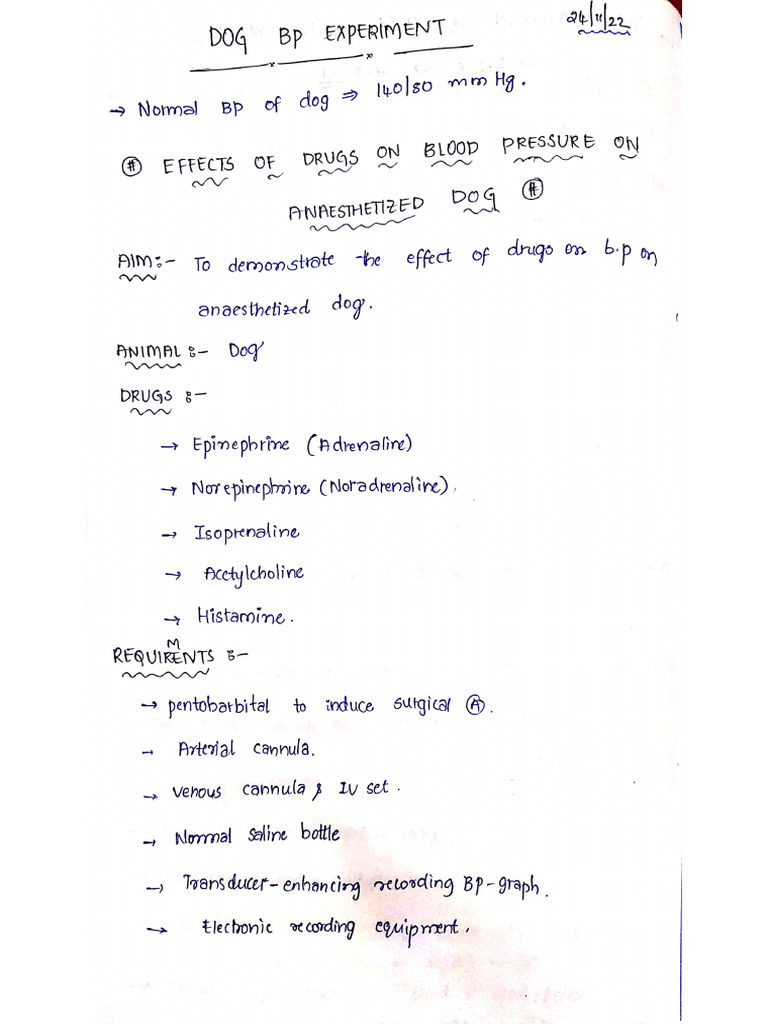 DOG BP EXPERIMENT
24/11/22
→ Normal BP of dog ⇒ 140/80 mm Hg.
# EFFECTS OF DRUGS ON BLOOD PRESSURE ON
ANAESTHETIZED DOG #
AIM:- To demonstrate the effect of drugs on b.p on
anaesthetized dog.
ANIMAL:- Dog
DRUGS:-
→ Epinephrine (Adrenaline)
→ Norepinephrine (Noradrenaline).
→ Isoprenaline
→ Acetylcholine
→ Histamine.
M
REQUIRENTS:-
→ pentobarbital to induce surgical Ⓐ.
→ Arterial cannula.
→ Venous cannula & IV set.
→ Normal Saline bottle
→ Transducer-enhancing recording BP-graph.
→ Electronic recording equipment.